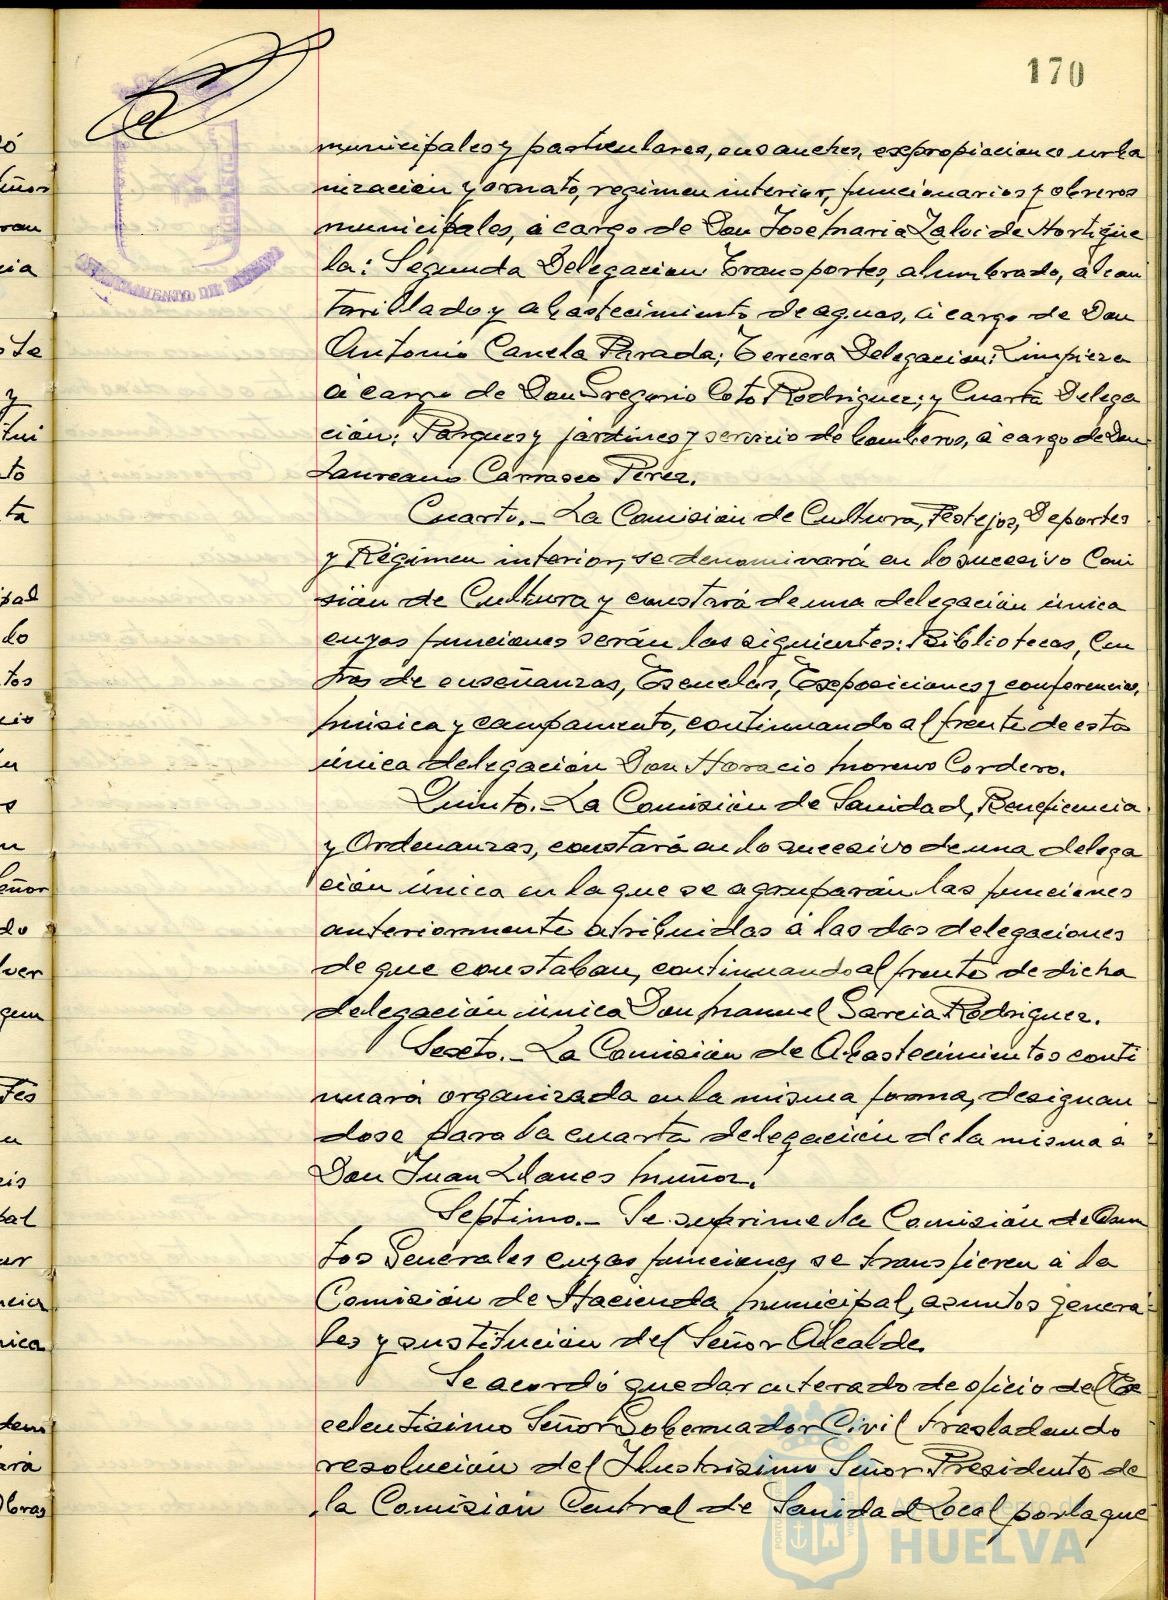 170
municipales y particulares, ensanches, expropiaciones urba
nización y ornato, regimen interior, funcionarios y obreros
municipales, á cargo de Don Jose Maria Zalvide Hortigüe
la: Segunda Delegacion Transportes, alumbrado, alcan
tarillado y abastecimiento de aguas, á cargo de Don
Antonio Canela Parada; Tercera Delegacion: Limpieza
á cargo de Don Gregorio Coto Rodriguez; y Cuarta Delega
ción: Parques y jardines y servicio de bomberos, á cargo de Don
Laureano Carrasco Perez.
Cuarto.- La Comisión de Cultura, Festejos, Deportes
y Régimen interior, se denominará en lo sucesivo Comi
sión de Cultura y constará de una delegación única
cuyas funciones serán las siguientes: Bibliotecas, Cen
tros de enseñanzas, Escuelas, Exposiciones y conferencias,
música y campamento, continuando al frente de esta
única delegación Don Horacio Moreno Cordero.
Quinto.- La Comisión de Sanidad, Beneficencia
y Ordenanzas, constará en lo sucesivo de una delega
ción única en la que se agruparán las funciones
anteriormente atribuidas á las dos delegaciones
de que constaban, continuando al frente de dicha
delegación única Don Manuel Garcia Rodriguez.
Sexto.- La Comisión de Abastecimientos conti
nuará organizada en la misma forma, designan
dose para la cuarta delegación de la misma á
Don Juan Llanes Muñoz.
Septimo.- Se suprime la Comisión de Asun
tos Generales cuyas funciones se transfieren á la
Comisión de Hacienda Municipal, asuntos genera
les y sustitución del Señor Alcalde.
Se acordó quedar enterado de oficio del Ex
celentisimo Señor Gobernador Civil trasladando
resolución del Ilustrisimo Señor Presidente de
la Comisión Central de Sanidad Local por la que
Ayuntamiento de
HUELVA